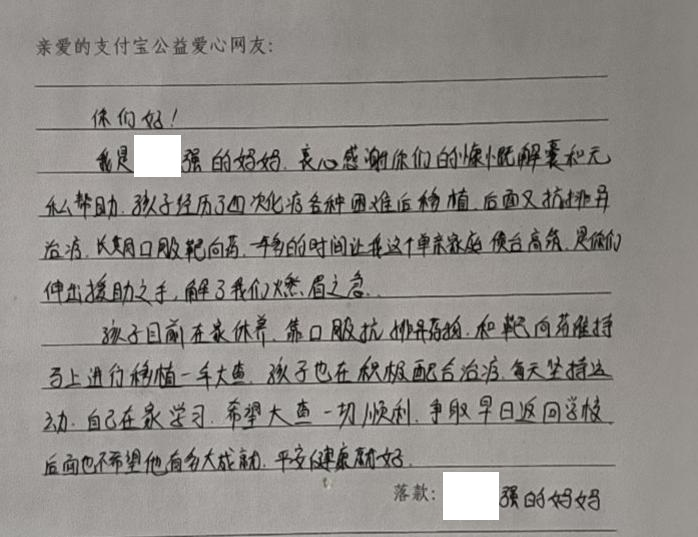 亲爱的支付宝公益爱心网友:
你们好!
我是 强的妈妈.衷心感谢你们的慷慨解囊和无
私帮助.孩子经历了四次化疗各种困难后移植.后面又抗排异
治疗.长期口服靶向药.一年多的时间让我这个单亲家庭债台高筑.是你们
伸出援助之手,解了我们燃眉之急.
孩子目前在家休养.靠口服抗排异药物.和靶向药维持
马上进行移植一年大查.孩子也在积极配合治疗.每天坚持运
动.自己在家学习.希望大查一切顺利.争取早日返回学校
后面也不希望他有多大成就.平安健康就好.
落款: 强的妈妈